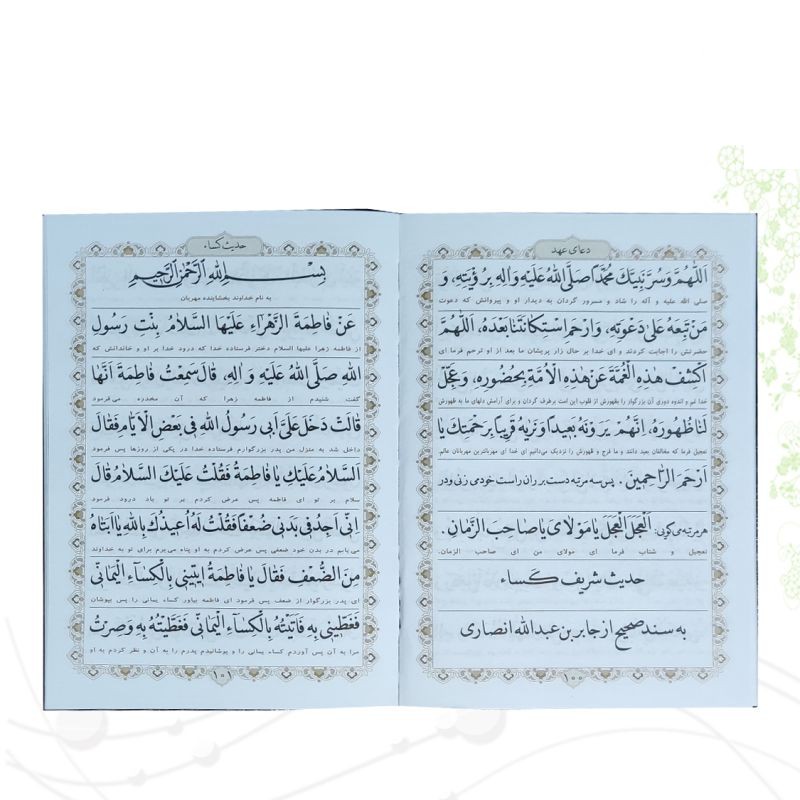 دعای عهد
اَللّٰهُمَّ وَسُرَّ نَبِیَّكَ مُحَمَّداً صَلَّی اللّٰهُ عَلَیْهِ وَاٰلِهِ بِرُؤْیَتِهِ، وَ
صلی الله علیه و آله را شاد و مسرور گردان به دیدار او و پیروانش که دعوت
مَنْ تَبِعَهُ عَلیٰ دَعْوَتِهِ، وَارْحَمِ اسْتِکانَتَنا بَعْدَهُ، اَللّٰهُمَّ
حضرتش را اجابت کردند و ای خدا بر حال زار پریشان ما بعد از او ترحم فرما ای
اکْشِفْ هٰذِهِ الْغُمَّةَ عَنْ هٰذِهِ الْاُمَّةِ بِحُضُورِهِ، وَعَجِّلْ
خدا غم و اندوه دوری آن بزرگوار را بظهورش از قلوب این امت برطرف گردان و برای آرامش دلهای ما به ظهورش
لَنا ظُهُورَهُ، اِنَّهُمْ یَرَوْنَهُ بَعیداً وَنَریٰهُ قَریباً بِرَحْمَتِكَ یا
تعجیل فرما که مخالفان بعید دانند و ما فرج و ظهورش را نزدیک می‌دانیم ای خدا ای مهربانترین مهربانان عالم.
اَرْحَمَ الرّٰاحِمینَ. پس سه مرتبه دست بر ران راست خود می زنی و در
هر مرتبه می گویی: اَلْعَجَلَ الْعَجَلَ یا مَوْلایَ یا صاحِبَ الزَّمانِ.
تعجیل و شتاب فرما ای مولای من ای صاحب الزمان.
حدیث شریف کساء
به سند صحیح از جابر بن عبدالله انصاری
۱۰۰
حدیث کساء
بِسْمِ اللّٰهِ الرَّحْمٰنِ الرَّحیمِ
به نام خداوند بخشاینده مهربان
عَنْ فاطِمَةَ الزَّهْراءِ عَلَیْهَا السَّلامُ بِنْتِ رَسُولِ
از فاطمه زهرا علیها السلام دختر فرستاده خدا که درود خدا بر او و خاندانش که
اللّٰهِ صَلَّی اللّٰهُ عَلَیْهِ وَ اٰلِهِ، قالَ سَمِعْتُ فاطِمَةَ اَنَّها
گفت شنیدم از فاطمه زهرا که آن مخدره می‌فرمود
قالَتْ دَخَلَ عَلَیَّ اَبی رَسُولُ اللّٰهِ فی بَعْضِ الْاَیّامِ فَقالَ
داخل شد به منزل من پدر بزرگوارم فرستاده خدا در یکی از روزها پس فرمود
اَلسَّلامُ عَلَیْكِ یا فاطِمَةُ فَقُلْتُ عَلَیْكَ السَّلامُ قالَ
سلام بر تو ای فاطمه پس عرض کردم بر تو باد درود فرمود
اِنّی اَجِدُ فی بَدَنی ضُعْفاً فَقُلْتُ لَهُ اُعیذُكَ بِاللّٰهِ یا اَبَتاهُ
می‌یابم در بدن خود ضعفی پس عرض کردم به او پناه می‌برم برای تو به خداوند
مِنَ الضُّعْفِ فَقالَ یا فاطِمَةُ ایتینی بِالْکِساءِ الْیَمانی
ای پدر بزرگوار از ضعف پس فرمود ای فاطمه بیاور کساء یمانی را پس بپوشان
فَغَطّینی بِهِ فَاَتَیْتُهُ بِالْکِساءِ الْیَمانی فَغَطَّیْتُهُ بِهِ وَ صِرْتُ
مرا به آن پس آوردم کساء یمانی را و پوشانیدم پدرم را به آن و نظر کردم به او
۱۰۱